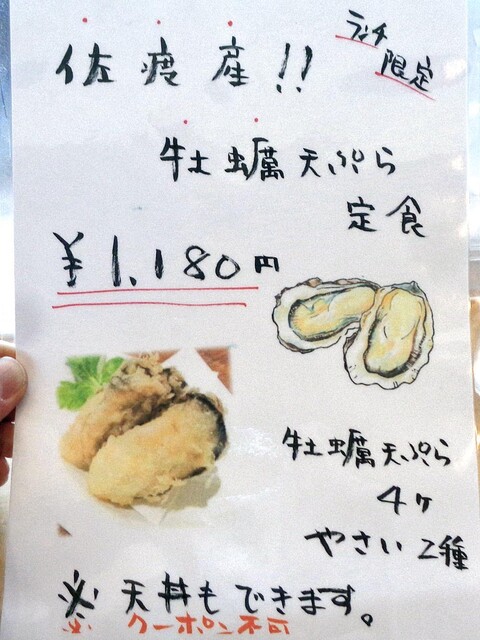 ランチ
限定
佐渡産!!
牡蠣天ぷら
定食
¥1,180円
牡蠣天ぷら
4ヶ
やさい2種
※天丼もできます。
※クーポン不可